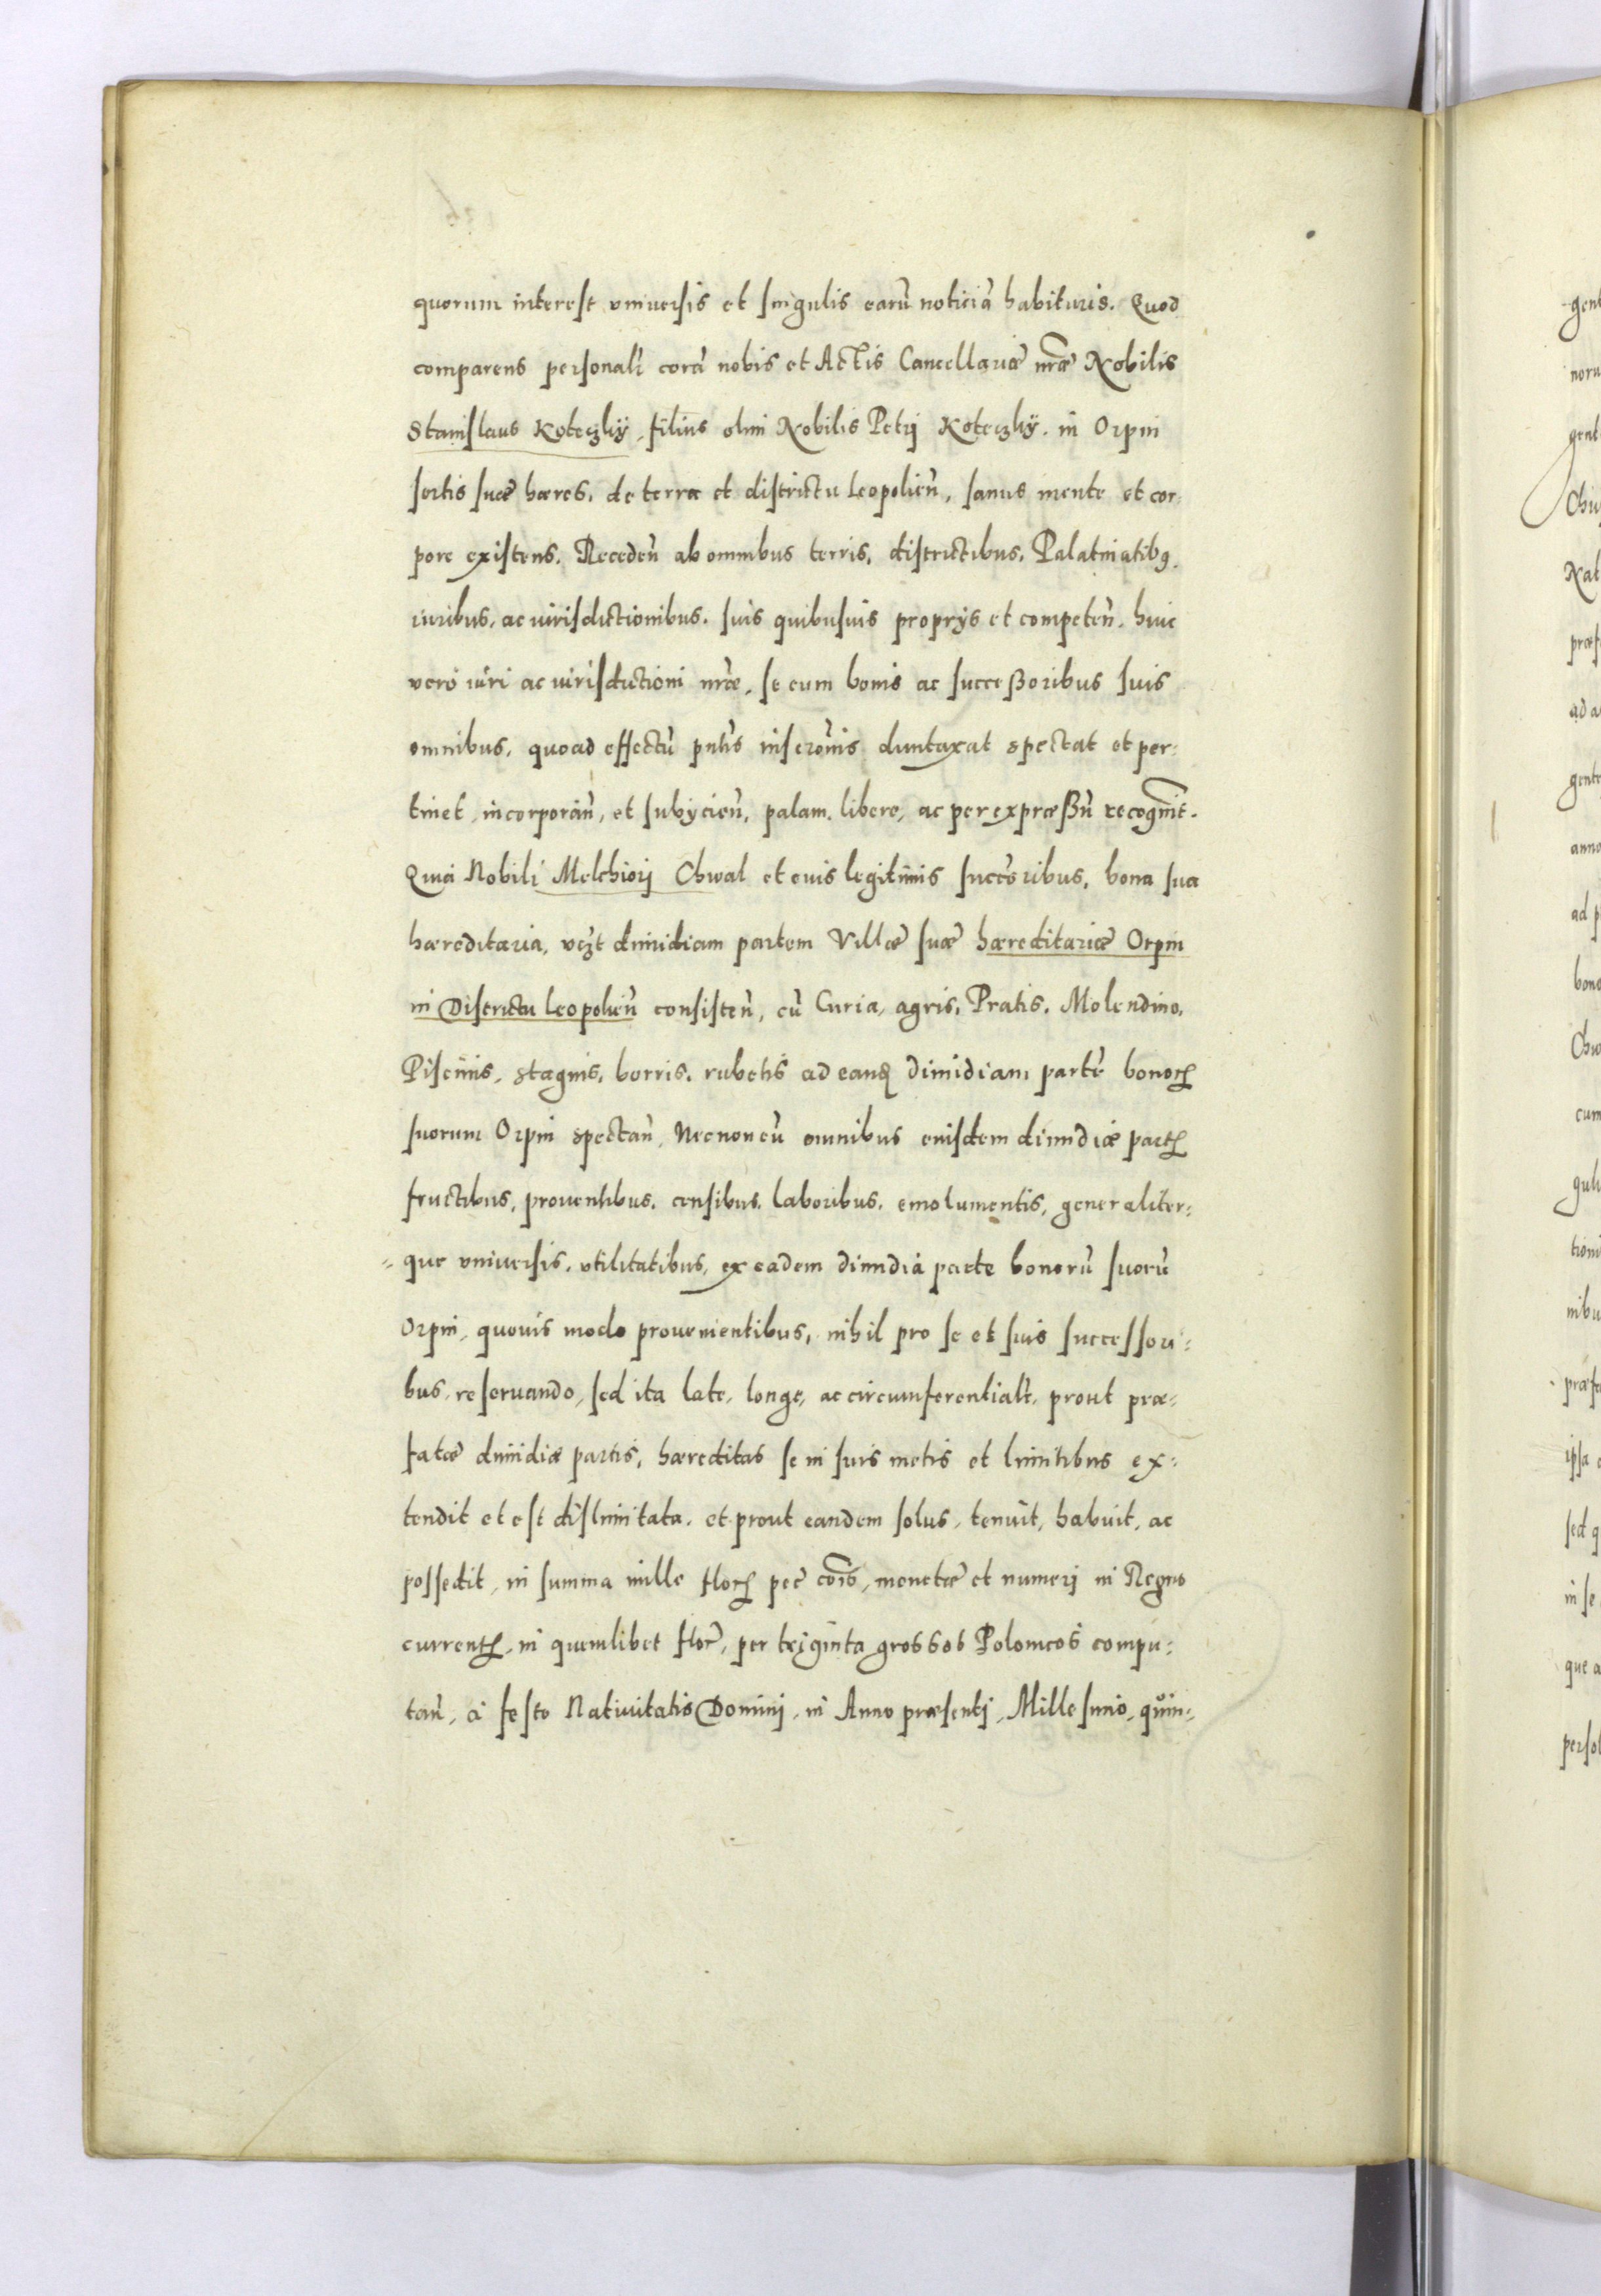 quorum interest vniuersis et singulis earũ noticiã habituris. Quod
comparens personalr̃ corã nobis et Actis Cancellariæ nr̃æ Nobilis
Stanislaus Koteczkÿ, filius olim Nobilis Petrj Koteczkÿ. in Orpin
sortis suæ hæres, de terra et districtu Leopolien̄, sanus mente et cor:
pore existens. Receden̄ ab omnibus terris, districtibus, Palatinatibꝯ.
iuribus, ac iurisdictionibus. suis quibusuis proprijs et competen̄. huic
vero iuri ac iurisdictioni nr̃æ, se cum bonis ac successoribus suis
omnibus, quoad effectũ pn̄tis inscrõnis duntaxat spectat et per:
tinet, incorporan̄, et subijcien̄, palam. libere, ac per expressũ recognit.
Quia Nobili Melchiorj Chwal et eius legitimis succ̃oribus, bona sua
hæreditaria, vcȝt dimidiam partem Villæ suæ hæreditariæ Orpin
in Districtu Leopolien̄ consisten̄, cũ Curia, agris, Pratis, Molendino,
Piscinis, stagnis, borris, rubetis ad eanđ dimidiam partẽ bonorꝝ
suorum Orpin spectan̄, Necnon cũ omnibus eiusdem dimidiæ partꝭ
fructibus, prouentibus, censibus, laboribus, emolumentis, generaliter:
=que vniuersis, vtilitatibus, ex eadem dimidia parte bonorũ suorũ
Orpin, quouis modo prouenientibus, nihil pro se et suis successori:
bus, reseruando, sed ita late, longe, ac circumferentialr̃, prout præ:
fatæ dimidiæ partis, hæreditas se in suis metis et limitibus ex:
tendit et est dislimitata. et prout eandem solus, tenuit, habuit, ac
possedit, in summa mille florꝭ pec̃ cõis, monetæ et numerj in Regno
currentꝭ, in quemlibet flor̃, per triginta grossos Polonicos compu:
tan̄, à festo Natiuitatis Dominj, in Anno præsentj, Millesimo, quin: